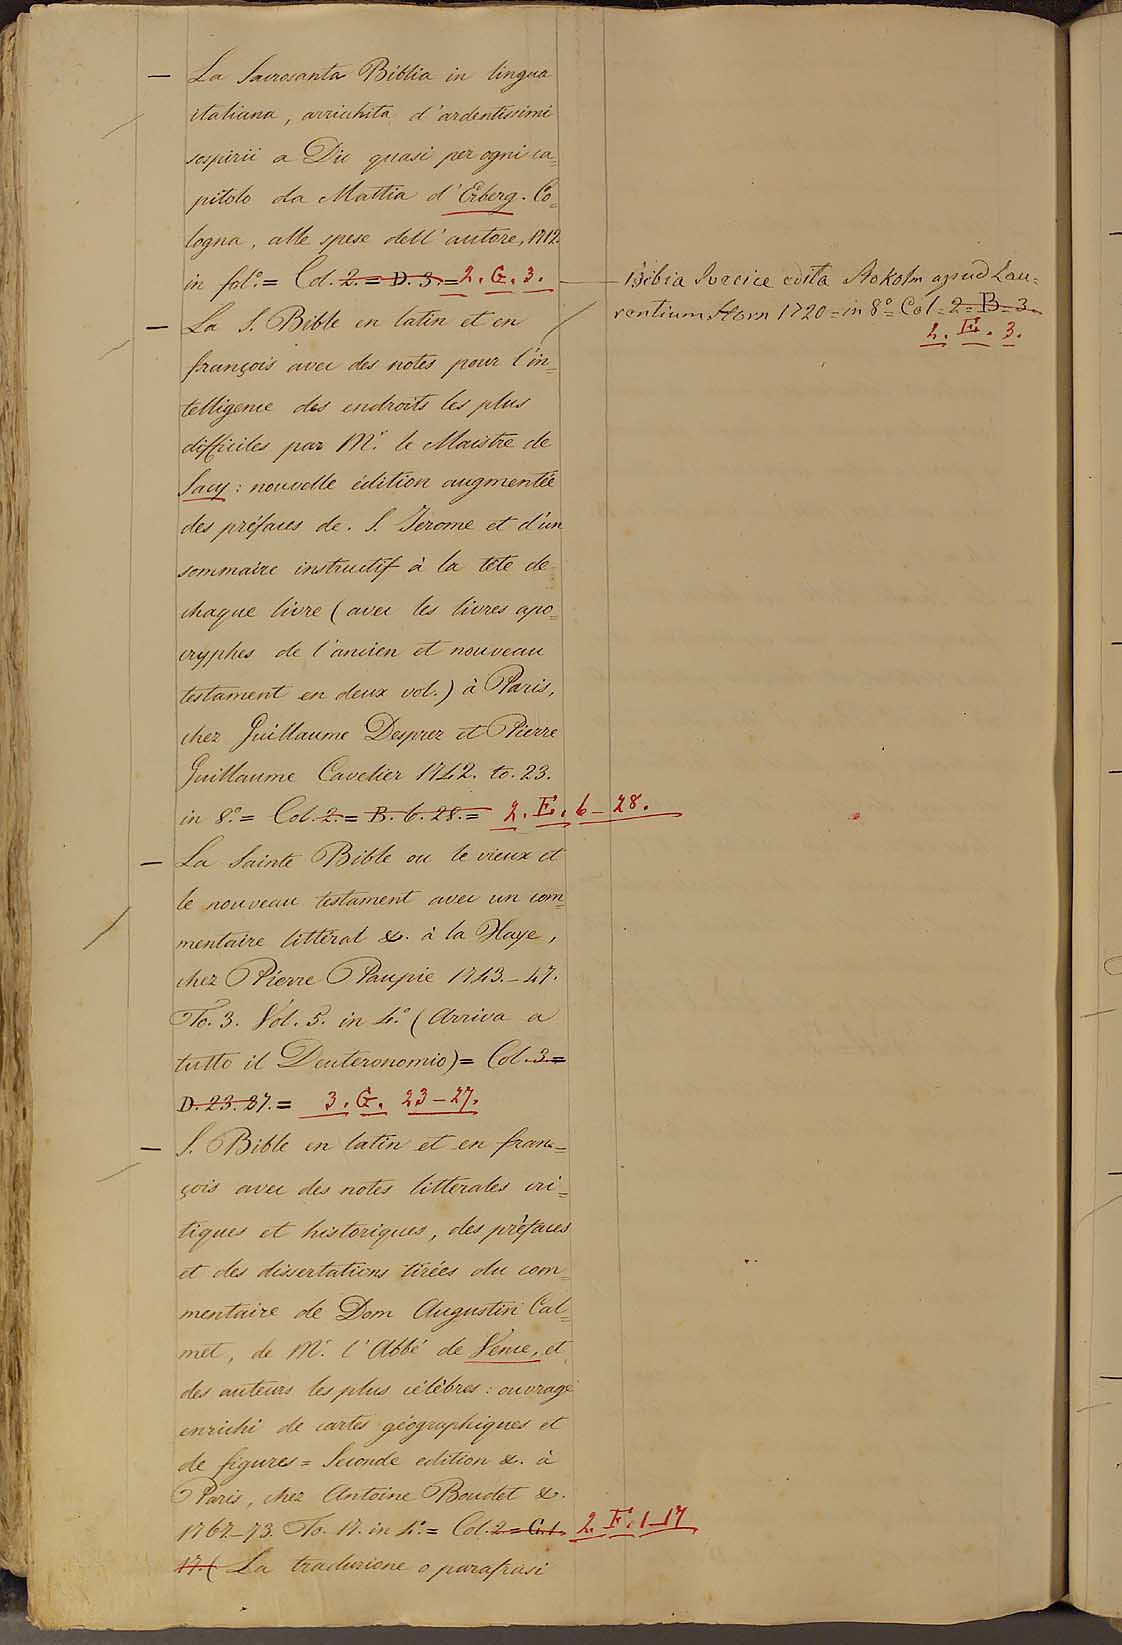 — La Sacrosanta Biblia in lingua
italiana, arricchita d'ardentissimi
sospirii a Dio quasi per ogni ca=
pitolo da Mattia d'Erberg. Co=
logna, alle spese dell'autore, 1712.
in fol.º = Col. 2. = D. 3. = 2. G. 3.
— La S. Bible en latin et en
françois avec des notes pour l'in=
telligence des endroits les plus
difficiles par M.r le Maistre de
Sacy: nouvelle édition augmentée
des préfaces de. S. Jerome et d'un
sommaire instructif à la tête de
chaque livre (avec les livres apo=
cryphes de l'ancien et nouveau
testament en deux vol.) à Paris,
chez Guillaume Desprez et Pierre
Guillaume Cavelier 1742. to. 23.
in 8.º = Col. 2. = B. 6. 28. = 2. E. 6–28.
— La Sainte Bible ou le vieux et
le nouveau testament avec un com=
mentaire littéral &. à la Haye,
chez Pierre Paupie 1743.–47.
To. 3. Vol. 5. in 4.º (Arriva a
tutto il Deuteronomio) = Col. 3. =
D. 23. 27. = 3. G. 23–27.
— S. Bible en latin et en fran=
çois avec des notes litterales cri=
tiques et historiques, des préfaces
et des dissertations tirées du com=
mentaire de Dom Augustin Cal=
met, de M.r l'Abbé de Vence, et
des auteurs les plus célèbres: ouvrage
enrichi de cartes géographiques et
de figures = Seconde edition &. à
Paris, chez Antoine Boudet &.
1767–73. To. 17. in 4.º = Col. 2 = C. 1. 2. F. 1–17
17. ( La traduzione o parafrasi
— Bibia Svecice edita Stokolm apud Lau=
rentium Horn 1720 = in 8.º = Col = 2 = B = 3.
2. E. 3.